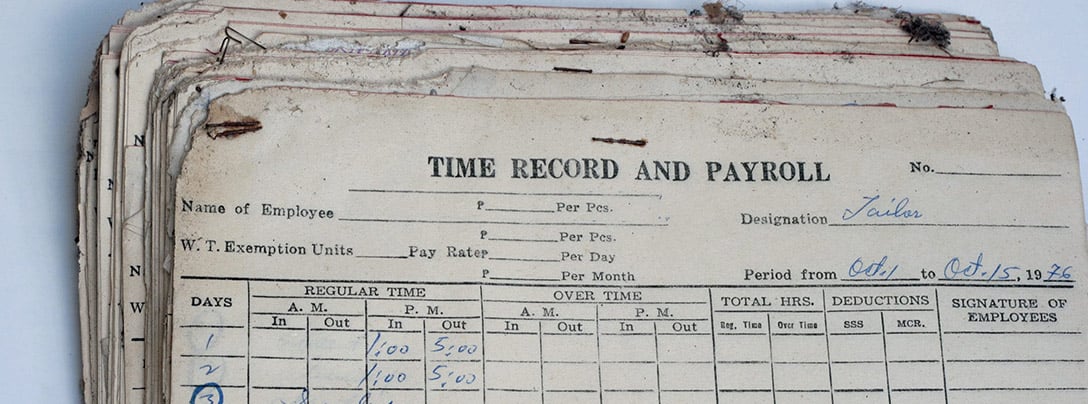 TIME RECORD AND PAYROLL No.
Name of Employee ₱ Per Pcs. Designation Tailor
₱ Per Pcs.
W. T. Exemption Units Pay Rate ₱ Per Day
₱ Per Month Period from Oct. 1 to Oct. 15, 1976
DAYS REGULAR TIME OVER TIME TOTAL HRS. DEDUCTIONS SIGNATURE OF EMPLOYEES
A. M. P. M. A. M. P. M.
In Out In Out In Out In Out Reg. Time Over Time SSS MCR.
1 1:00 5:00
2 1:00 5:00
3
N
N
N
W